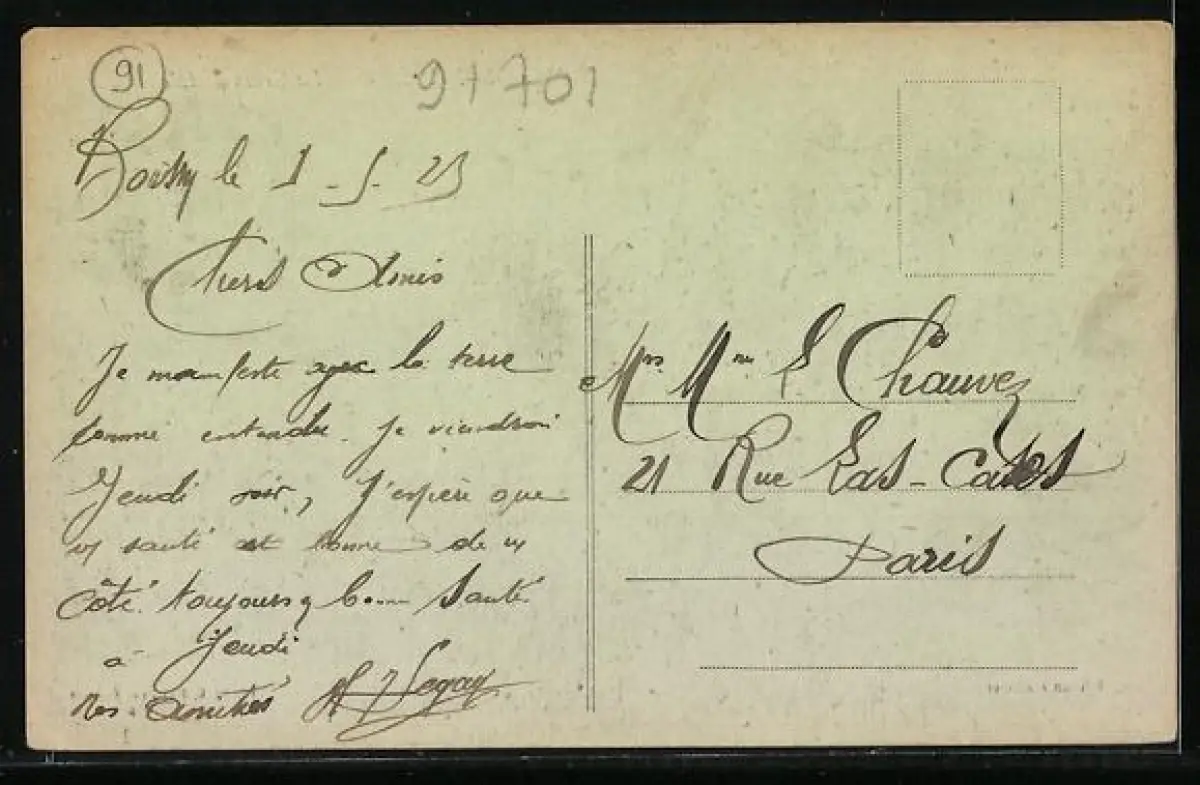 91
91 701
Boissy le 1-5-23
Chers Amis
Je manifeste avec la terre
comme entendu. Je viendrai
Jeudi soir, J'espère que
santé est bonne de
côté. toujours bonne santé
à Jeudi
Mes amitiés
Mrs Mme E Chauvez
21 Rue Las-Cases
Paris